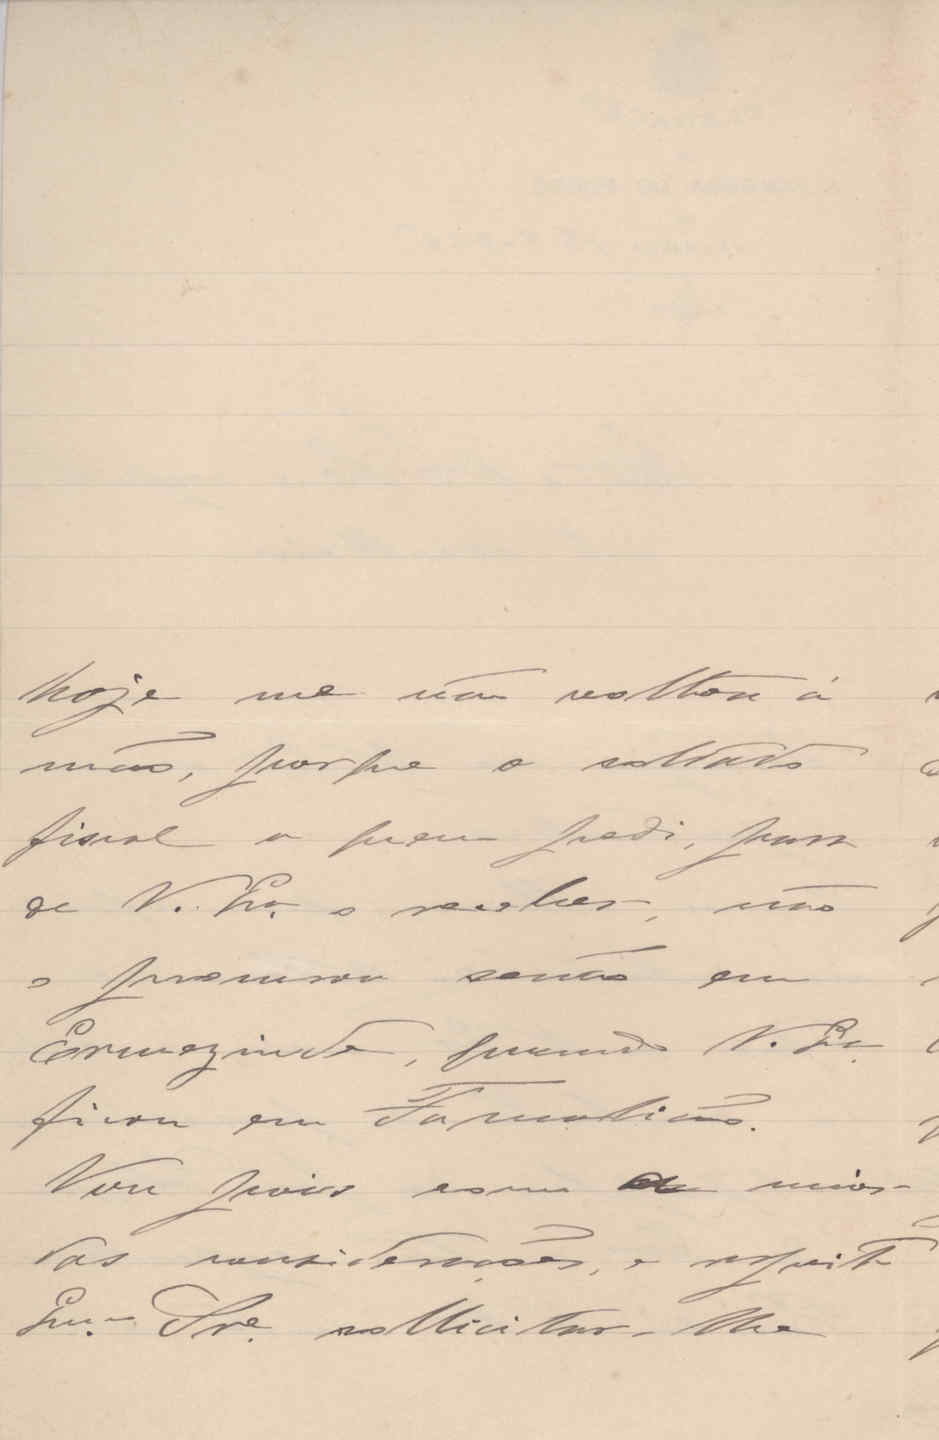 hoje me não voltou á
mão, porque o soldado
fiscal a quem pedi, para
de V. Ex. o receber, não
o procurou senão em
Ermezinde, quando V. Ex.
ficou em Famalicão.
Vou pois com a maior
das considerações, e respeito
Exmo. Snr. sollicitar-lhe